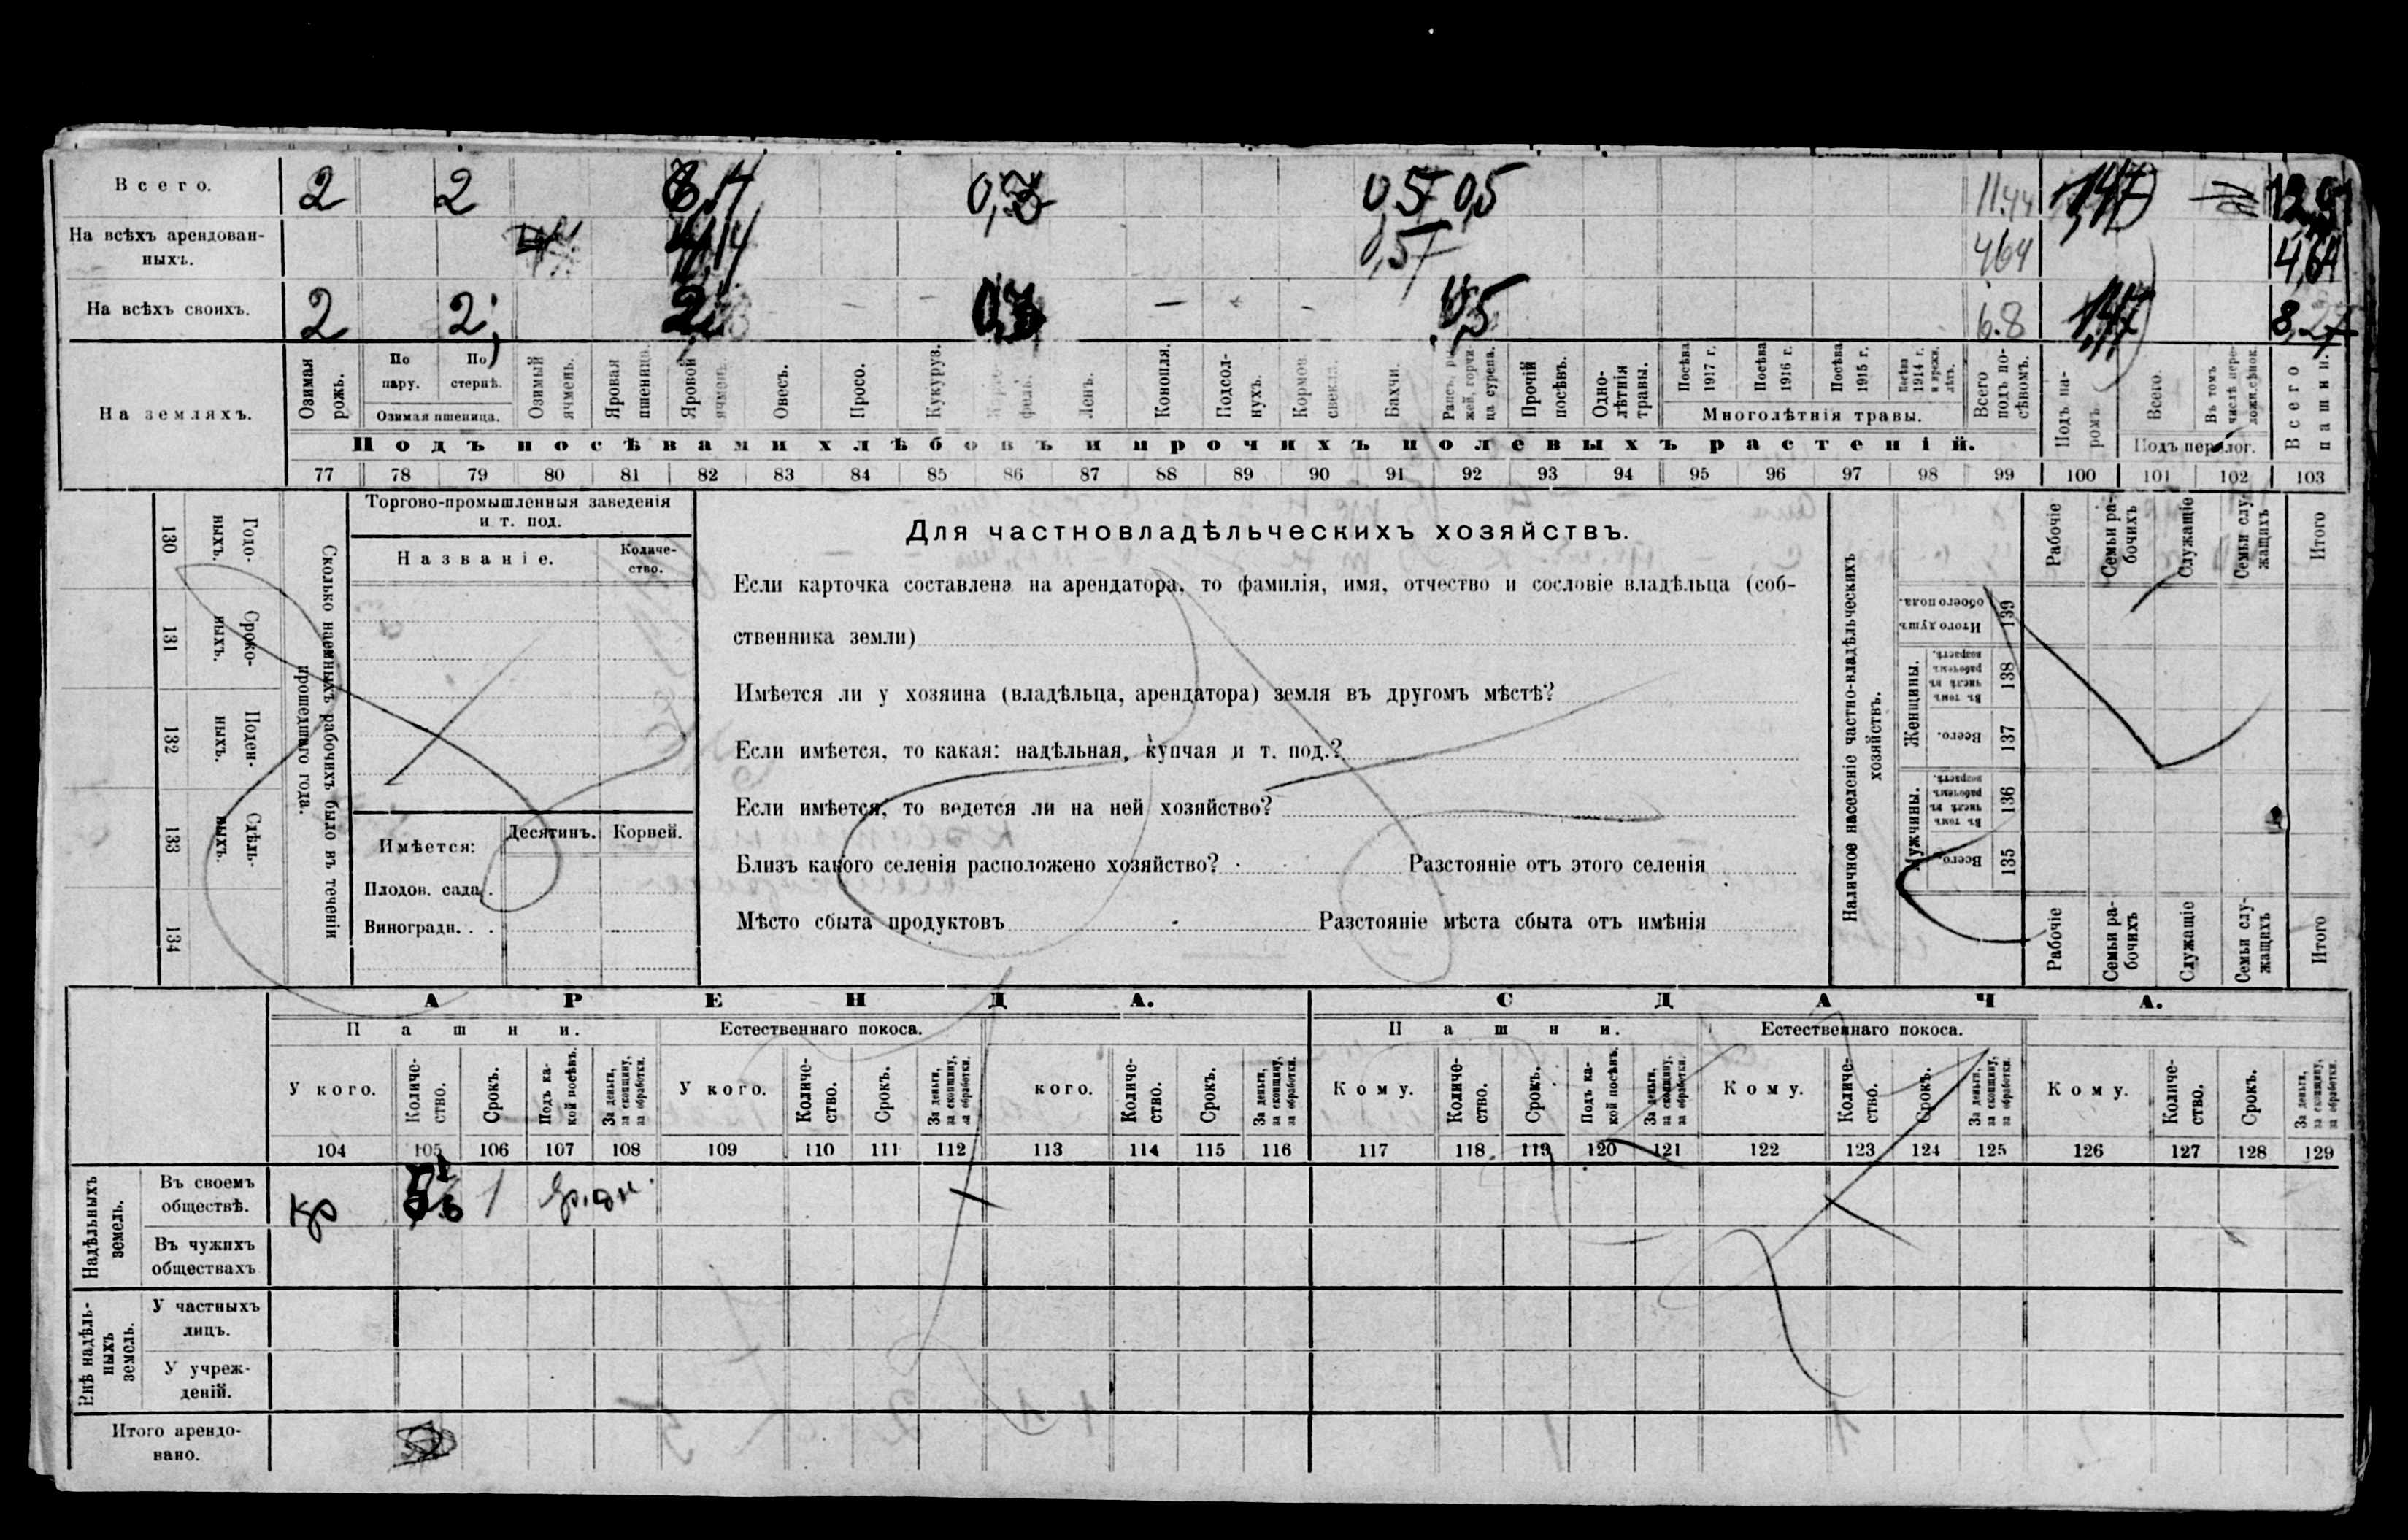 Всего. 2 2 0,57 0,5 11.44 1,47
На всѣхъ арендован-
ныхъ. 0,57 4.64 4,64
На всѣхъ своихъ. 2 2 0,5 6.8 1,47 8,27
На земляхъ.
Озимая рожь.
По пару.
По стернѣ.
Озимая пшеница.
Озимый ячмень.
Яровая пшеница.
Яровой ячмень.
Овесъ.
Просо.
Кукуруз.
Ленъ.
Конопля.
Подсол-
нухъ.
Кормов. свекла.
Бахчи.
Прочій посѣвъ.
Одно-
лѣтнія травы.
Посѣва 1917 г.
Посѣва 1916 г.
Посѣва 1915 г.
Посѣва 1914 г.
Многолѣтнія травы.
Всего подъ по-
сѣвомъ.
Подъ па-
ромъ.
Всего.
Въ томъ числѣ пере-
Подъ перелог.
Всего пашни.
Подъ посѣвами хлѣбовъ и прочихъ полевыхъ растеній.
77 78 79 80 81 82 83 84 85 86 87 88 89 90 91 92 93 94 95 96 97 98 99 100 101 102 103
130 131 132 133 134
Годо-
ныхъ.
Сроко-
ныхъ.
Поден-
ныхъ.
Сдѣль-
ныхъ.
Сколько наемныхъ рабочихъ было въ теченіи
прошедшаго года.
Торгово-промышленныя заведенія
и т. под.
Названіе.
Количе-
ство.
Имѣется:
Десятинъ.
Корней.
Плодов. сада.
Виноградн. . .
Для частновладѣльческихъ хозяйствъ.
Если карточка составлена на арендатора, то фамилія, имя, отчество и сословіе владѣльца (соб-
ственника земли)
Имѣется ли у хозяина (владѣльца, арендатора) земля въ другомъ мѣстѣ?
Если имѣется, то какая: надѣльная, купчая и т. под.?
Если имѣется, то ведется ли на ней хозяйство?
Близъ какого селенія расположено хозяйство? Разстояніе отъ этого селенія
Мѣсто сбыта продуктовъ Разстояніе мѣста сбыта отъ имѣнія
Наличное населеніе частно-владѣльческихъ
хозяйствъ.
Итого душъ
обоего пола.
139
Женщины.
Въ томъ числѣ въ рабочемъ возрастѣ.
138
Всего.
137
Мужчины.
Въ томъ числѣ въ рабочемъ возрастѣ.
136
Всего.
135
Рабочіе
Семьи ра-
бочихъ
Служащіе
Семьи слу-
жащихъ
Итого
Рабочіе
Семьи ра-
бочихъ
Служащіе
Семьи слу-
жащихъ
Итого
АРЕНДА. СДАЧА.
Пашни. Естественнаго покоса. Пашни. Естественнаго покоса.
У кого.
Количе-
ство.
Срокъ.
Подъ ка-
кой посѣвъ.
За деньги,
за скопщину,
за обработки.
У кого.
Количе-
ство.
Срокъ.
За деньги,
за скопщину,
за обработки.
кого.
Количе-
ство.
Срокъ.
За деньги,
за скопщину,
за обработки.
Кому.
Количе-
ство.
Срокъ.
Подъ ка-
кой посѣвъ.
За деньги,
за скопщину,
за обработки.
Кому.
Количе-
ство.
Срокъ.
За деньги,
за скопщину,
за обработки.
Кому.
Количе-
ство.
Срокъ.
За деньги,
за скопщину,
за обработки.
104 105 106 107 108 109 110 111 112 113 114 115 116 117 118 119 120 121 122 123 124 125 126 127 128 129
Надѣльныхъ
земель.
Въ своемъ
обществѣ. кр 1
Въ чужихъ
обществахъ
Внѣ надѣль-
ныхъ
земель.
У частныхъ
лицъ.
У учреж-
деній.
Итого арендо-
вано.